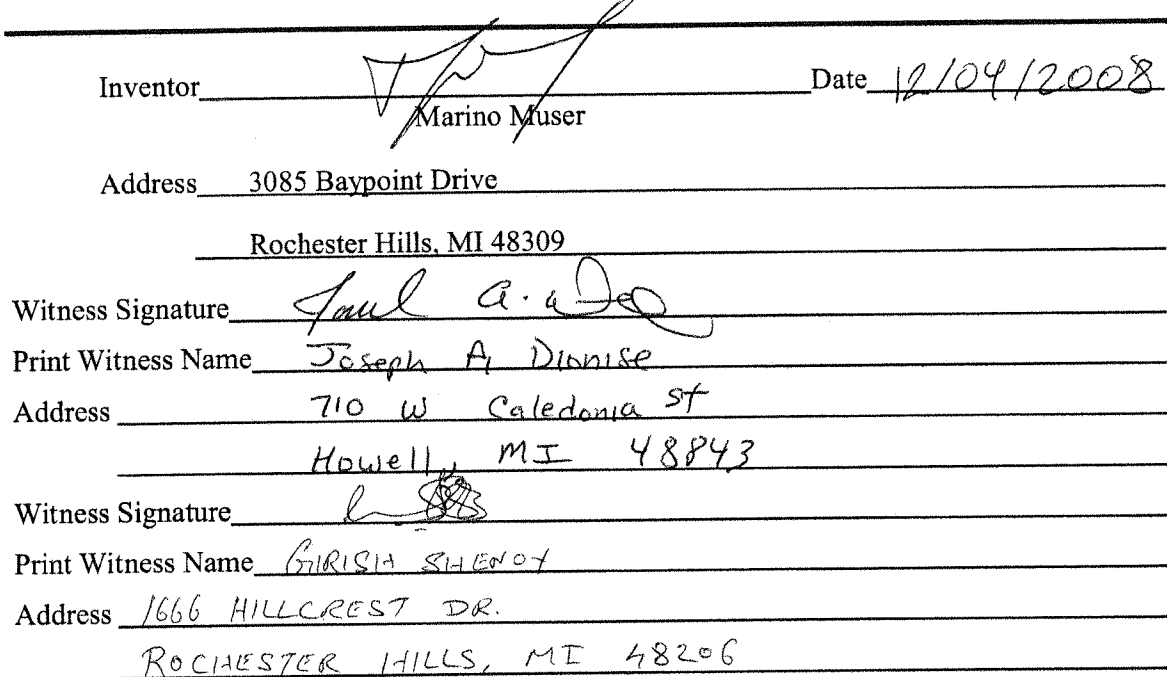 Inventor Date 12/04/2008
Marino Muser
Address 3085 Baypoint Drive
Rochester Hills, MI 48309
Witness Signature
Print Witness Name Joseph A. Dionise
Address 710 W Caledonia St
Howell, MI 48843
Witness Signature
Print Witness Name GIRISH SHENOY
Address 1666 HILLCREST DR.
ROCHESTER HILLS, MI 48206